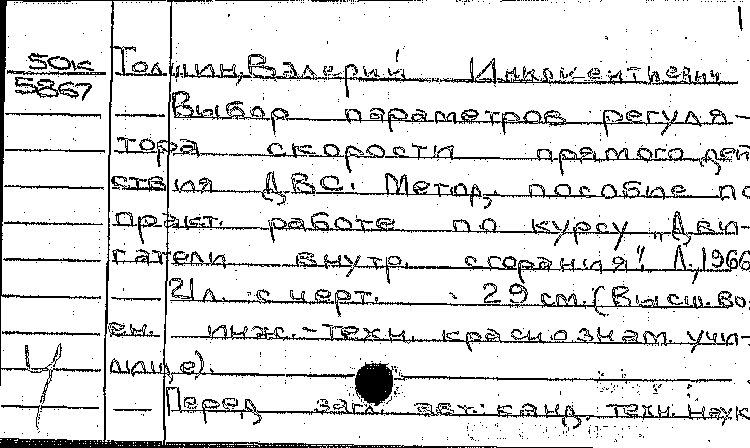 50к Толшин, Валерий Инокентьевич
5867
Выбор параметров регуля-
тора скорости прямого дей
ствия ДВС. Метод. пособие по
практ. работе по курсу „Дви-
гатели внутр. сгорания". Л., 1966
21 л. с черт. 29 см. (Высш. во
ен. инж.-техн. краснознам. учи-
лище).
Перед загл. авт.: канд. техн. наук